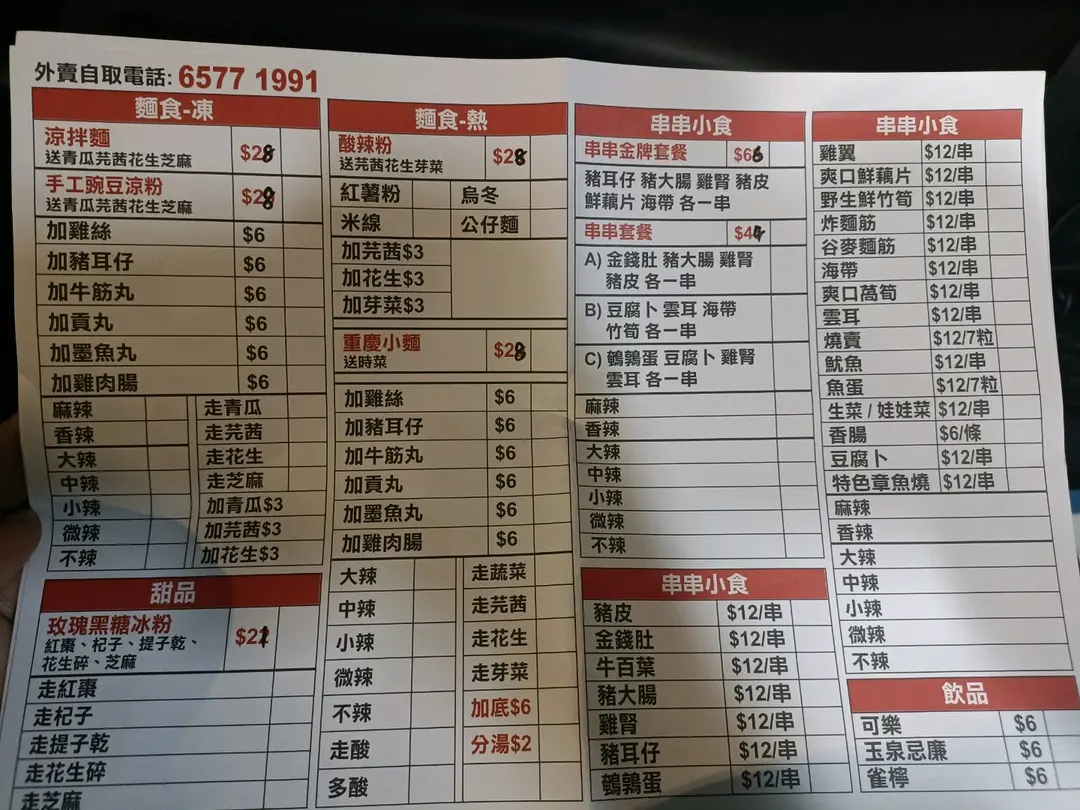 外賣自取電話: 6577 1991
麵食-凍
涼拌麵 $28
送青瓜芫茜花生芝麻
手工豌豆涼粉 $28
送青瓜芫茜花生芝麻
加雞絲 $6
加豬耳仔 $6
加牛筋丸 $6
加貢丸 $6
加墨魚丸 $6
加雞肉腸 $6
麻辣 走青瓜
香辣 走芫茜
大辣 走花生
中辣 走芝麻
小辣 加青瓜$3
微辣 加芫茜$3
不辣 加花生$3
甜品
玫瑰黑糖冰粉 $21
紅棗、杞子、提子乾、
花生碎、芝麻
走紅棗
走杞子
走提子乾
走花生碎
走芝麻
麵食-熱
酸辣粉 $28
送芫茜花生芽菜
紅薯粉 烏冬
米線 公仔麵
加芫茜$3
加花生$3
加芽菜$3
重慶小麵 $28
送時菜
加雞絲 $6
加豬耳仔 $6
加牛筋丸 $6
加貢丸 $6
加墨魚丸 $6
加雞肉腸 $6
大辣 走蔬菜
中辣 走芫茜
小辣 走花生
微辣 走芽菜
不辣 加底$6
走酸 分湯$2
多酸
串串小食
串串金牌套餐 $66
豬耳仔 豬大腸 雞腎 豬皮
鮮藕片 海帶 各一串
串串套餐 $44
A) 金錢肚 豬大腸 雞腎
豬皮 各一串
B) 豆腐卜 雲耳 海帶
竹筍 各一串
C) 鵪鶉蛋 豆腐卜 雞腎
雲耳 各一串
麻辣
香辣
大辣
中辣
小辣
微辣
不辣
串串小食
豬皮 $12/串
金錢肚 $12/串
牛百葉 $12/串
豬大腸 $12/串
雞腎 $12/串
豬耳仔 $12/串
鵪鶉蛋 $12/串
串串小食
雞翼 $12/串
爽口鮮藕片 $12/串
野生鮮竹筍 $12/串
炸麵筋 $12/串
谷麥麵筋 $12/串
海帶 $12/串
爽口萵筍 $12/串
雲耳 $12/串
燒賣 $12/7粒
魷魚 $12/串
魚蛋 $12/7粒
生菜 / 娃娃菜 $12/串
香腸 $6/條
豆腐卜 $12/串
特色章魚燒 $12/串
麻辣
香辣
大辣
中辣
小辣
微辣
不辣
飲品
可樂 $6
玉泉忌廉 $6
雀檸 $6